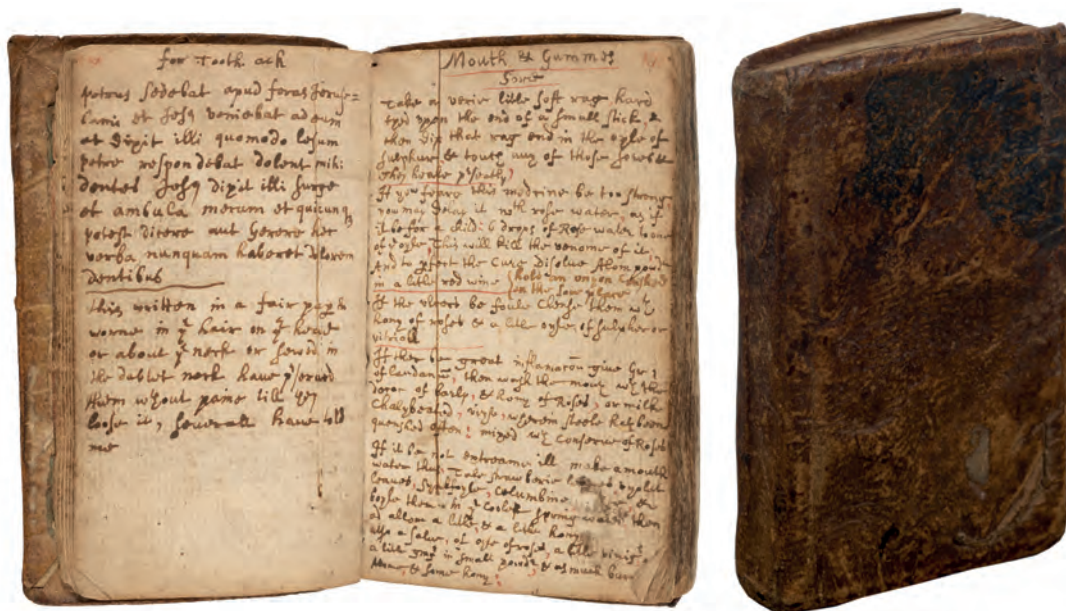 for Tooth ach
petrus sedebat apud foras Jeruse=
lami et Jesq veniebat ad eum
et dixit illi quomodo
petre respondebat dolent mihi
dentes Jesq dixit illi surge
et ambula et quicunq
potest dicere aut gerere hec
verba nunquam haberet dolorem
dentibus
this written in a fair
worne in yᵉ hair on yᵉ heade
or about yᵉ neck or sewed in
the neck have pserved
them wᵗhout paine till they
loose it, severall have told
me
Mouth & Gummes
Sores
Take a verie litle soft rage hard
tyed upon the end of a small stick &
then dip that rage end in the oyle of
Sulphur & touch any of those sores &
they heale psently,
If you feare this medcine be too stronge
you may delay it wᵗh rose water, as if
it be for a child: 6 drops of Rose water to one
of oyle, This will kill the venome of it,
And to pfect the Cure disolve Alom
in a litle red wine hold an onyon
on the sore place
If the ulcers be foule Clense them wᵗʰ
hony of roses & a litle oyle, of sulpher or
vitriall
If ther be great inflamacon give Gr: 1
of laudanũ, then wash the mouth wᵗʰ the
of barly, & hony of Roses, or milke
Chalybeated, wherein steele hath been
quenched often: mixed wᵗʰ Conserve of Roses
If it be not extreame ill make a mouth
water thus, Take strawberie leaves
leaves, Columbine
boyle them in spring water then
ad allom a litle, & a litle hony
also a salve, of oyle of roses, a litle
a litle in small & as much
& some hony